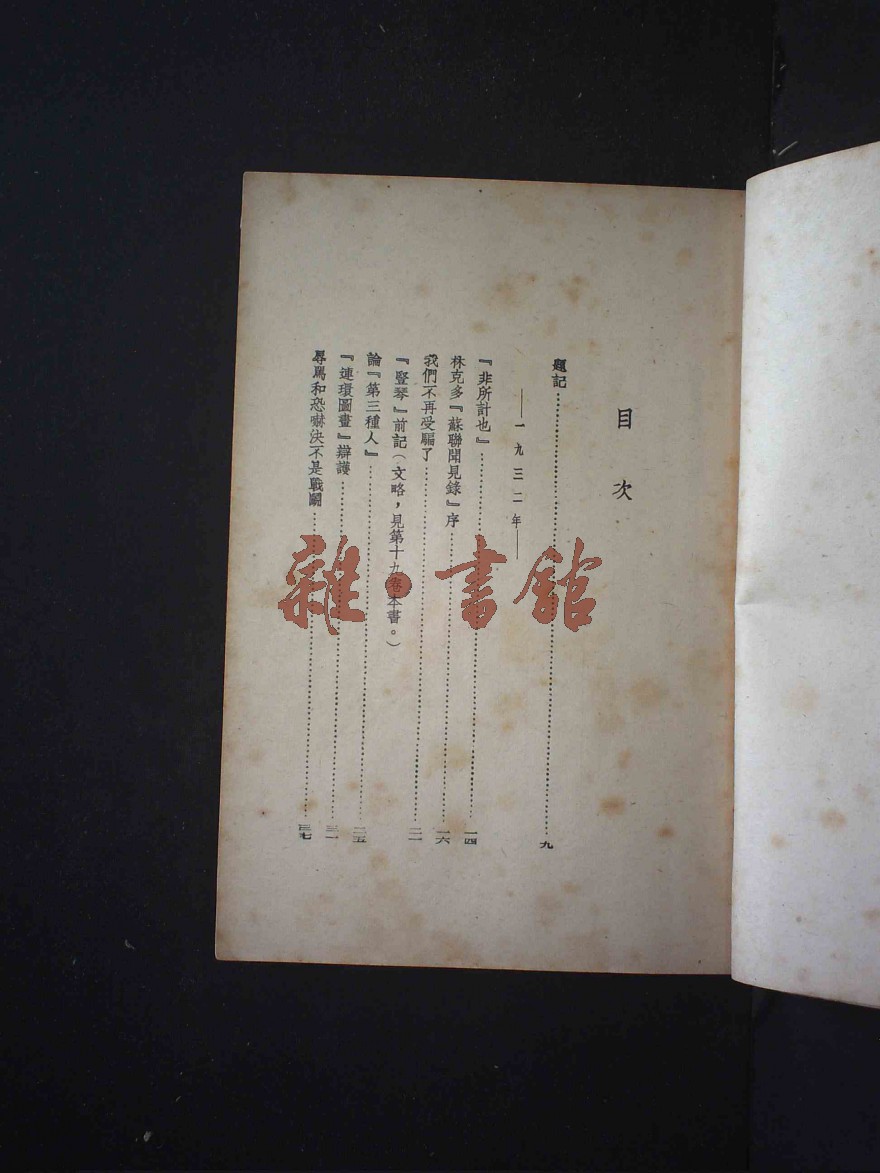 目次
題記…………九
——一九三二年——
『非所計也』…………一四
林克多『蘇聯聞見錄』序…………一六
我們不再受騙了…………二一
『豎琴』前記(文略,見第十九卷本書。)
論『第三種人』…………二五
『連環圖畫』辯護…………三一
辱罵和恐嚇決不是戰鬭…………三七
雜·書館